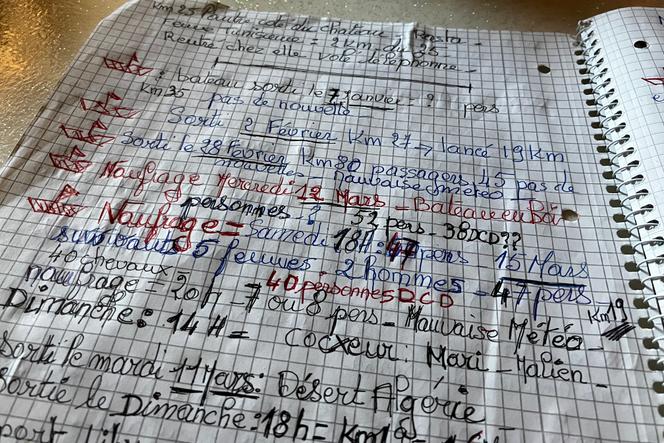 Km 25 Rentre côté du château
Femme tunisienne = 2 Km du 25
Rentre chez elle vole telephonne
: bateau sorti le 7 Janvier = ? pers
Km 35 pas de nouvelle
Sorti 2 Février Km 27 → lancé 19 Km
Sorti le 28 Février Km 30 passagers 45 pas de
nouvelles - mauvaise méteo
Naufrage Mercredi 12 Mars - Bateau en Boi
personnes ? 53 pers - 38 DCD??
Naufrage = Samedi 18H: 47 pers - 15 Mars
survivants 5 femmes - 2 hommes = 47 pers
40 chevaux 40 personnes DCD
naufrage = 20h - 7 ou 8 pers - Mauvaise Météo - Km 19
Dimanche: 14H = cocxeur: Mari - Malien -
Sorti le mardi 11 Mars: Désert Algérie
Sortie le Dimanche: 18h = Km 19 =
port